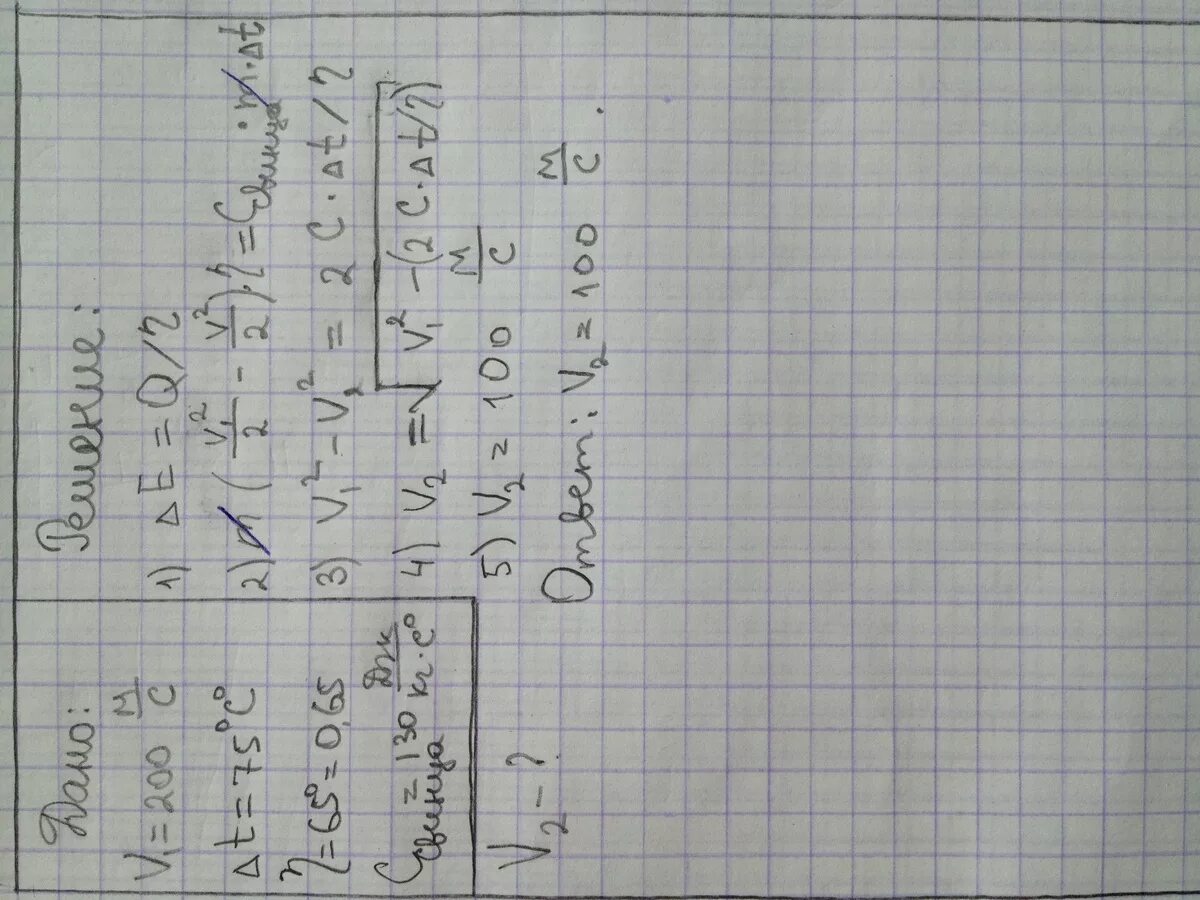 Дано:
V₁ = 200 м/с
Δt = 75°C°
η = 65° = 0,65
Cсвинца = 130 Дж/кг·C°
V₂ - ?
Решение:
1) ΔE = Q/η
2) m(V₁²/2 - V²/2)·η = Cсвинца·m·Δt
3) V₁² - V₂² = 2C·Δt/η
4) V₂ = √(V₁² - (2C·Δt/η))
5) V₂ = 100 м/с
Ответ: V₂ = 100 м/с.